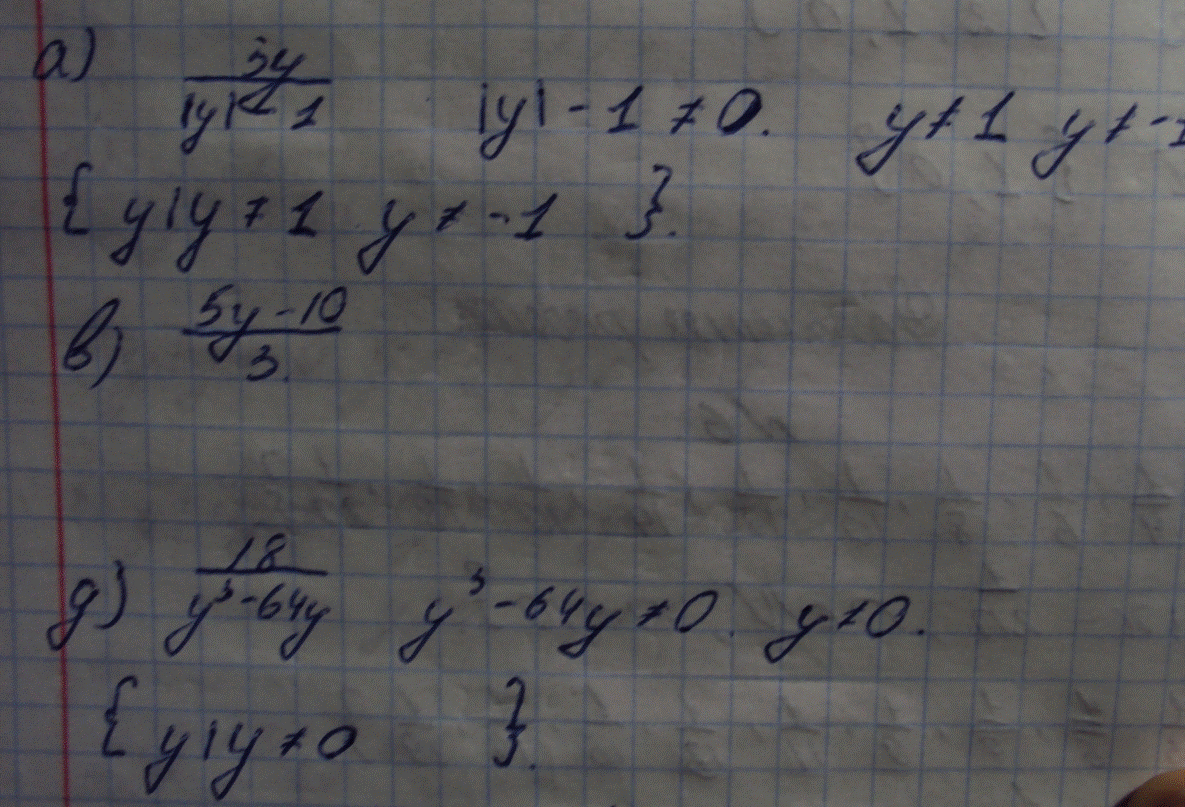 а) 3y / |y| - 1 |y| - 1 ≠ 0. y ≠ 1 y ≠ -1
{ y | y ≠ 1 y ≠ -1 }.
в) 5y - 10 / 3.
д) 18 / y³ - 64y y³ - 64y ≠ 0. y ≠ 0.
{ y | y ≠ 0 }.